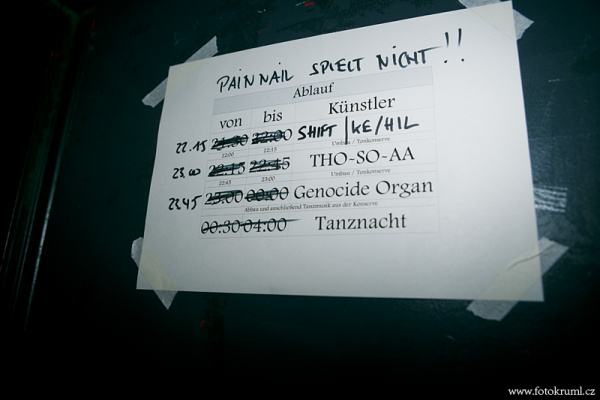 PAIN NAIL SPIELT NICHT!!
Ablauf
von bis Künstler
22.15 21:30 22:00 SHIFT/KE/HIL
22:00 22:15 Umbau / Tonkonserve
23.00 22:15 22:45 THO-SO-AA
22:45 23:00 Umbau / Tonkonserve
23:00 00:00 Genocide Organ
Abbau und anschließend Tanzmusik aus der Konserve
00:30 04:00 Tanznacht
www.fotokruml.cz